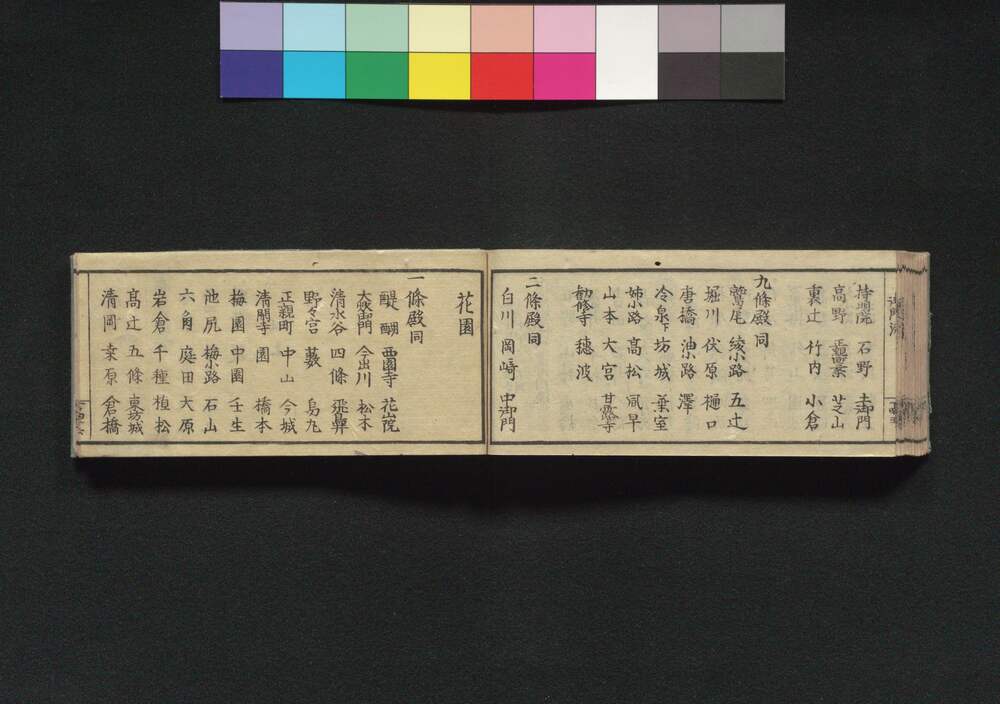 持明院 石野 土御門
高野 正親町三条 芝山
裏辻 竹内 小倉
九條殿同
鷲尾 綾小路 五辻
堀川 伏原 樋口
唐橋 油小路 澤
冷泉下 坊城 葉室
姉小路 高松 風早
山本 大宮 甘露寺
勧修寺 穂波
二條殿同
白川 岡崎 中御門
花園
一條殿同
醍醐 西園寺 花山院
大炊御門 今出川 松本
清水谷 四條 飛鳥井
野々宮 藪 烏丸
正親町 中山 今城
清閑寺 園 橋本
梅園 中園 壬生
池尻 梅小路 石山
六角 庭田 大原
岩倉 千種 植松
髙辻 五條 東坊城
清岡 桒原 倉橋